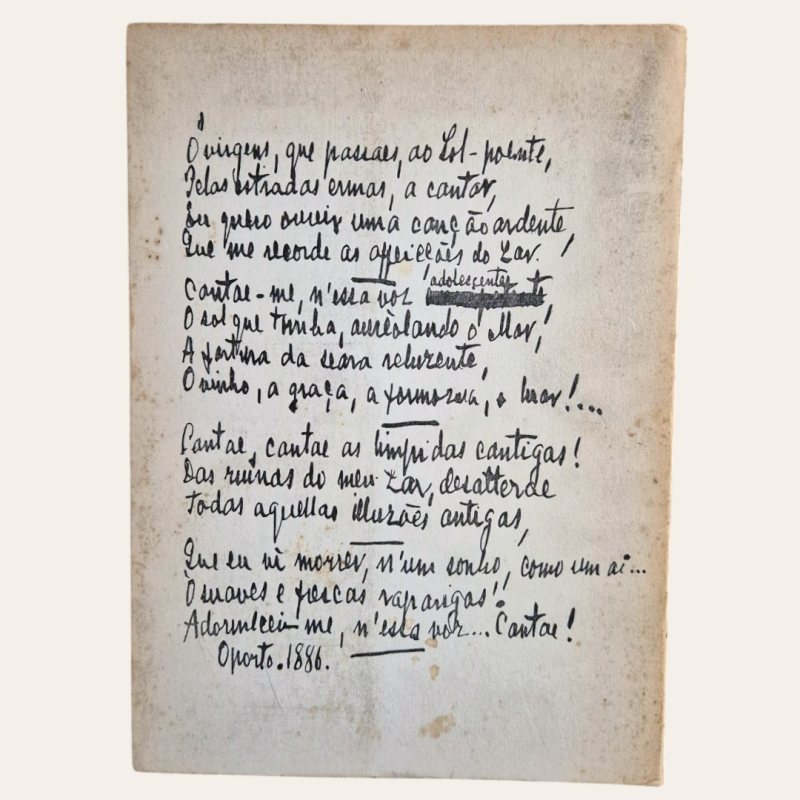 Ó virgens, que passaes, ao Sol-poente,
Pelas estradas ermas, a cantar,
Eu quero ouvir uma canção ardente,
Que me recorde as affeições do Lar.
Cantae-me, n'essa voz adolescente,
O sol que tomba, aureolando o Mar,
A fartura da seara reluzente,
O vinho, a graça, a formozura, o luar!...
Cantae, cantae as limpidas cantigas!
Das ruinas do meu Lar, desatterae
Todas aquellas illuzões antigas,
Que eu vi morrer, n'um sonho, como um ai...
Ó suaves e frescas raparigas!
Adormecei-me, n'essa voz... Cantae!
Oporto. 1886.